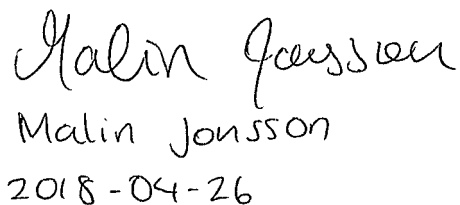 Malin Jonsson
Malin Jonsson
2018-04-26